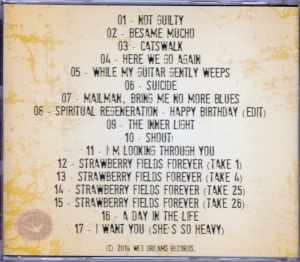 01 - NOT GUILTY
02 - BESAME MUCHO
03 - CATSWALK
04 - HERE WE GO AGAIN
05 - WHILE MY GUITAR GENTLY WEEPS
06 - SUICIDE
07 - MAILMAN, BRING ME NO MORE BLUES
08 - SPIRITUAL REGENERATION - HAPPY BIRTHDAY (EDIT)
09 - THE INNER LIGHT
10 - SHOUT!
11 - I'M LOOKING THROUGH YOU
12 - STRAWBERRY FIELDS FOREVER (TAKE 1)
13 - STRAWBERRY FIELDS FOREVER (TAKE 4)
14 - STRAWBERRY FIELDS FOREVER (TAKE 25)
15 - STRAWBERRY FIELDS FOREVER (TAKE 26)
16 - A DAY IN THE LIFE
17 - I WANT YOU (SHE'S SO HEAVY)
(C) 2016 WET DREAMS RECORDS.